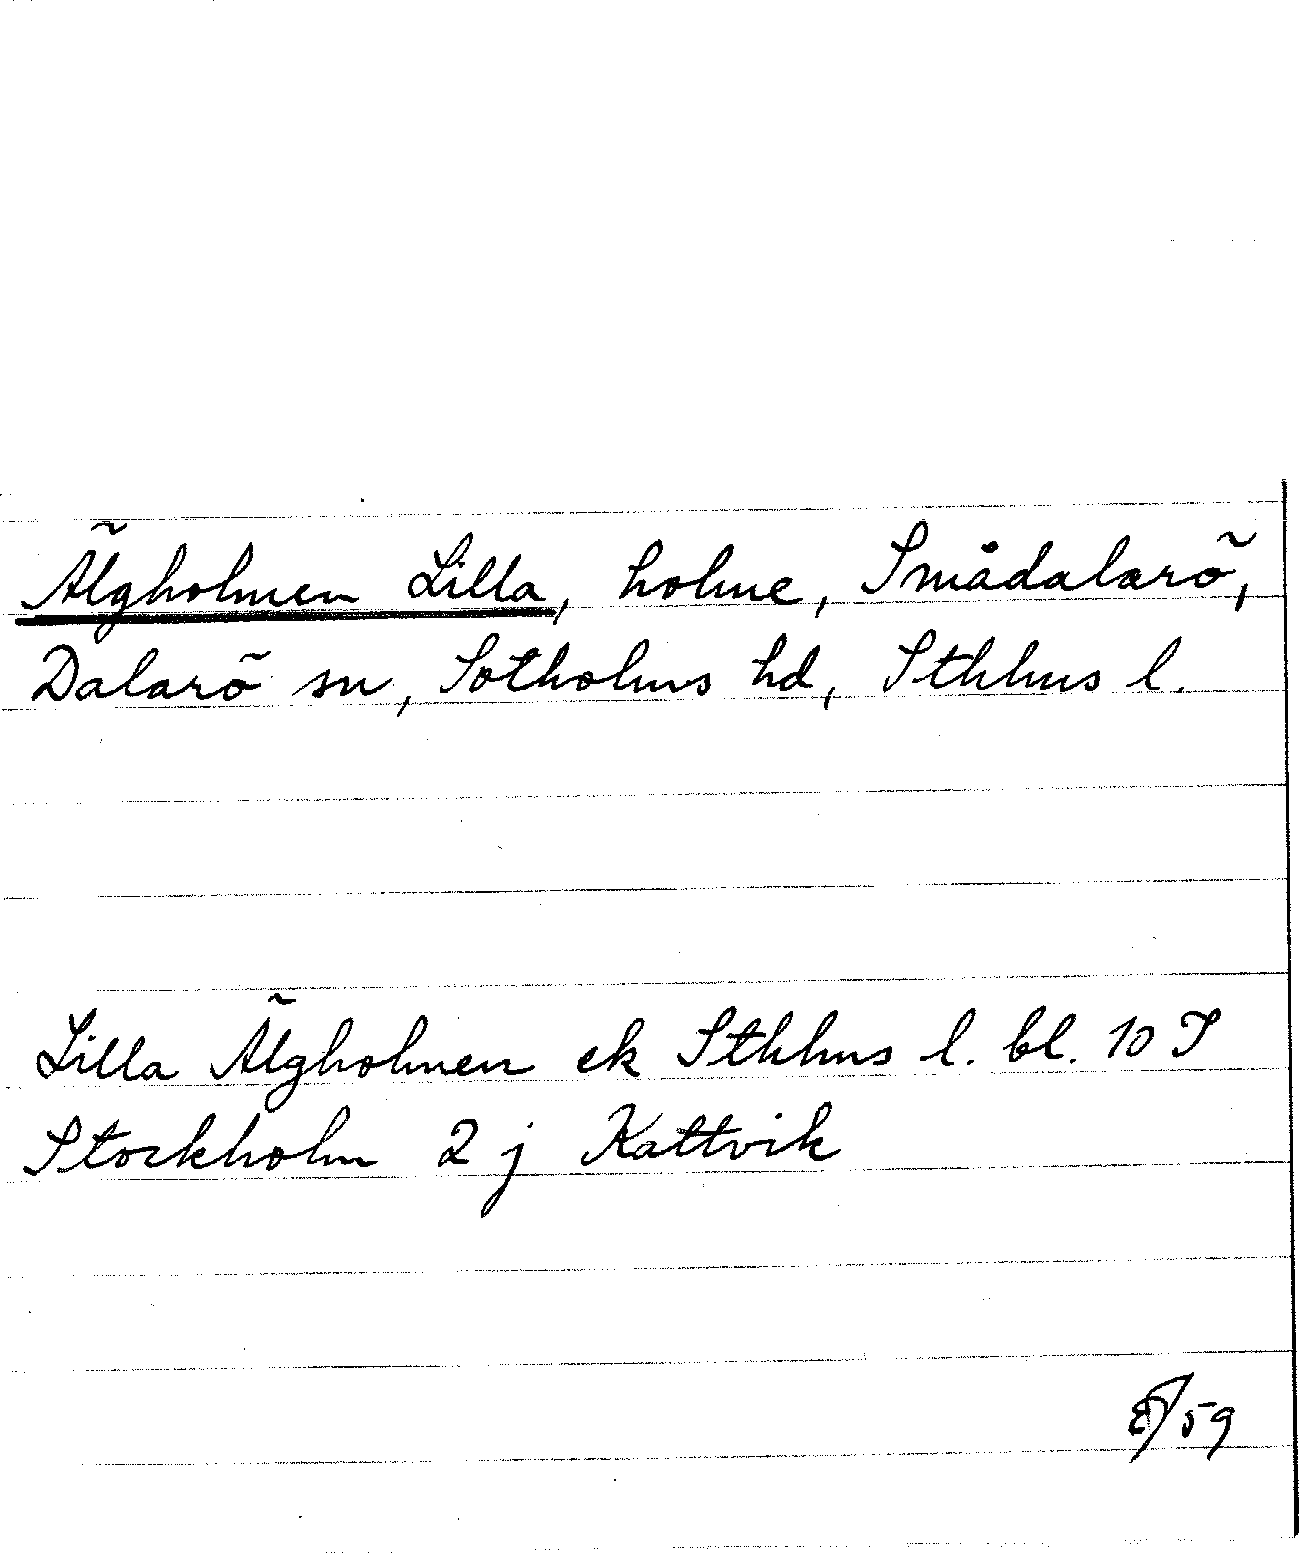 Älgholmen Lilla, holme, Smådalarö,
Dalarö sn, Sotholms hd, Sthlms l.
Lilla Älgholmen ek Sthlms l. bl. 10 I
Stockholm 2 j Kattvik
/59